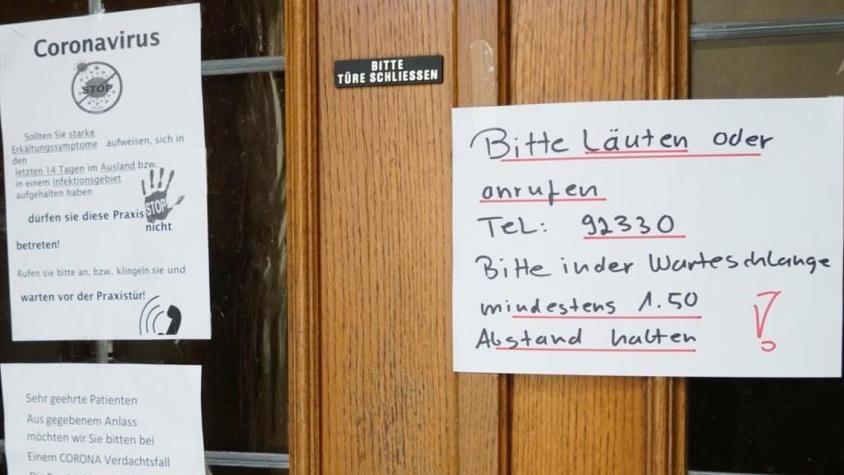 Coronavirus
STOP
Sollten Sie starke
Erkältungssymptome aufweisen, sich in
den
letzten 14 Tagen im Ausland bzw.
in einem Infektionsgebiet
aufgehalten haben
STOP
dürfen sie diese Praxis
nicht
betreten!
Rufen sie bitte an, bzw. klingeln sie und
warten vor der Praxistür!
Sehr geehrte Patienten
Aus gegebenem Anlass
möchten wir Sie bitten bei
Einem CORONA Verdachtsfall
BITTE
TÜRE SCHLIESSEN
Bitte Läuten oder
anrufen
Tel: 92330
Bitte in der Warteschlange
mindestens 1.50
Abstand halten !